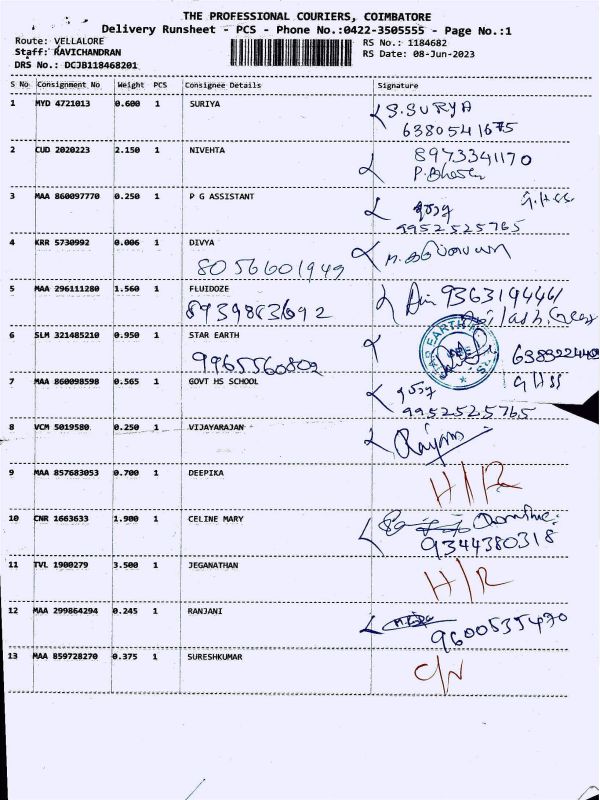 THE PROFESSIONAL COURIERS, COIMBATORE
Delivery Runsheet - PCS - Phone No.:0422-3505555 - Page No.:1
Route: VELLALORE
RS No.: 1184682
Staff: RAVICHANDRAN
RS Date: 08-Jun-2023
DRS No.: DCJB118468201
S No Consignment No Weight PCS Consignee Details Signature
1 MYD 4721013 0.600 1 SURIYA S.SURYA
6380541675
2 CUD 2020223 2.150 1 NIVEHTA 8973341170
3 MAA 860097770 0.250 1 P G ASSISTANT G.Hss
9952525765
4 KRR 5730992 0.006 1 DIVYA
8056601949
5 MAA 296111280 1.560 1 FLUIDOZE 9363194461
8939863692
6 SLM 321485210 0.950 1 STAR EARTH
9965560802
7 MAA 860098598 0.565 1 GOVT HS SCHOOL GHSS
9952525765
8 VCM 5019580 0.250 1 VIJAYARAJAN
9 MAA 857683053 0.700 1 DEEPIKA H/R
10 CNR 1663633 1.900 1 CELINE MARY
9344380318
11 TVL 1900279 3.500 1 JEGANATHAN H/R
12 MAA 299864294 0.245 1 RANJANI
9600535470
13 MAA 859728270 0.375 1 SURESHKUMAR C/N